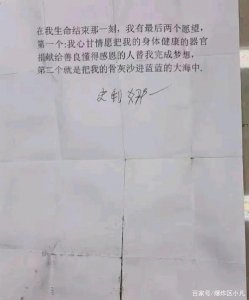 在我生命结束那一刻，我有最后两个愿望，
第一个：我心甘情愿把我的身体健康的器官
捐献给善良懂得感恩的人替我完成梦想，
第二个就是把我的骨灰沙进蓝蓝的大海中.
百家号/爆炸区小凡